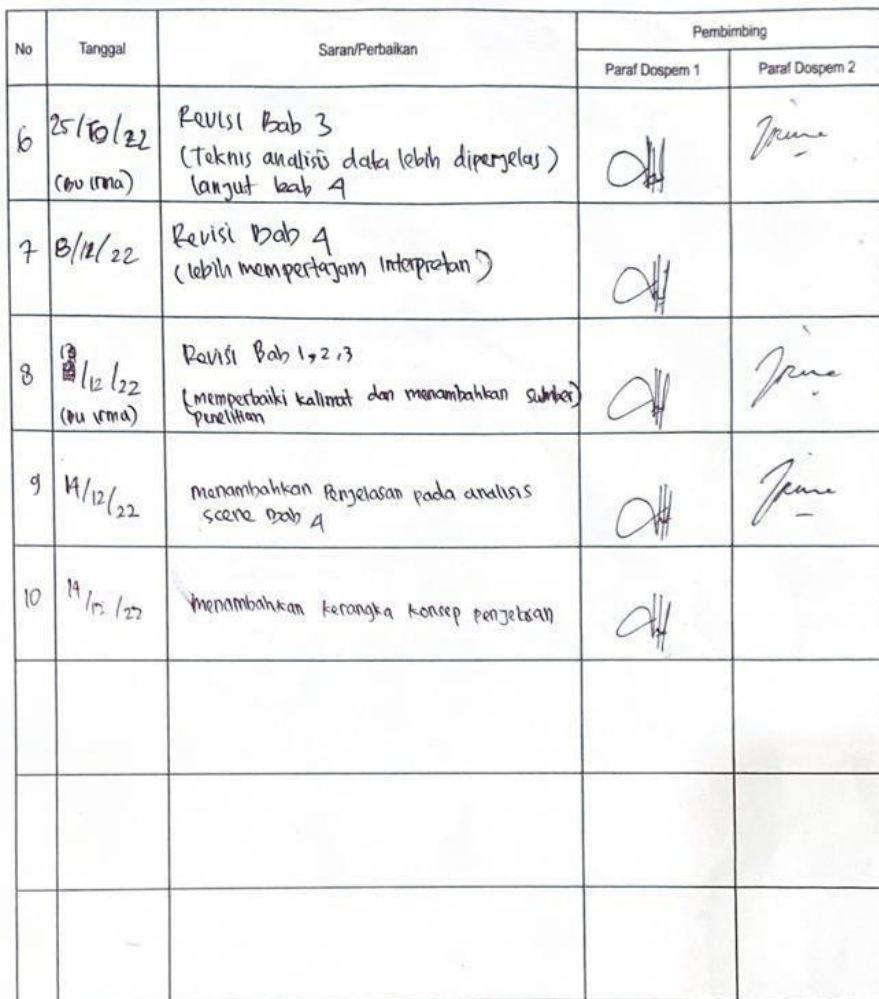 No Tanggal Saran/Perbaikan Pembimbing
Paraf Dospem 1 Paraf Dospem 2
6 25/10/22 Revisi Bab 3
(Teknis analisis data lebih diperjelas)
(Bu Irma) lanjut bab 4
7 /12/22 Revisi Bab 4
(lebih mempertajam Interpretan)
8 13/12/22 Revisi Bab 1,2,3
(memperbaiki kalimat dan menambahkan sumber)
(Bu Irma) penelitian
9 14/12/22 menambahkan Penjelasan pada analisis
scene Bab 4
10 14/12/22 menambahkan kerangka konsep